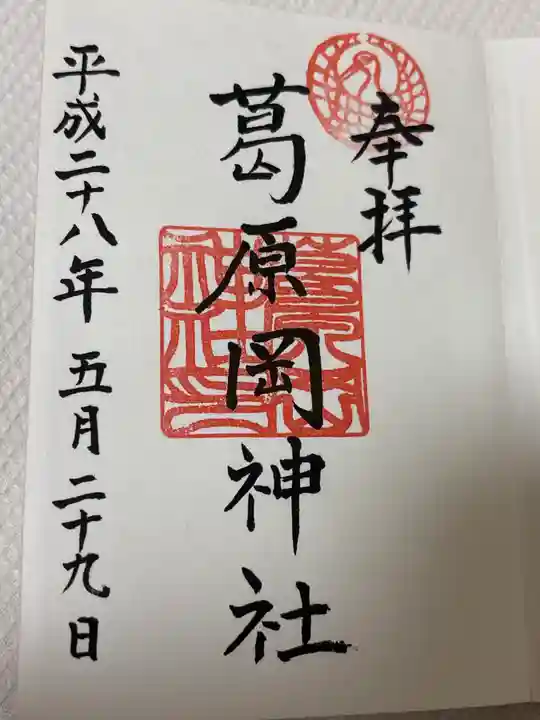 奉拝
葛原岡神社
平成二十八年五月二十九日